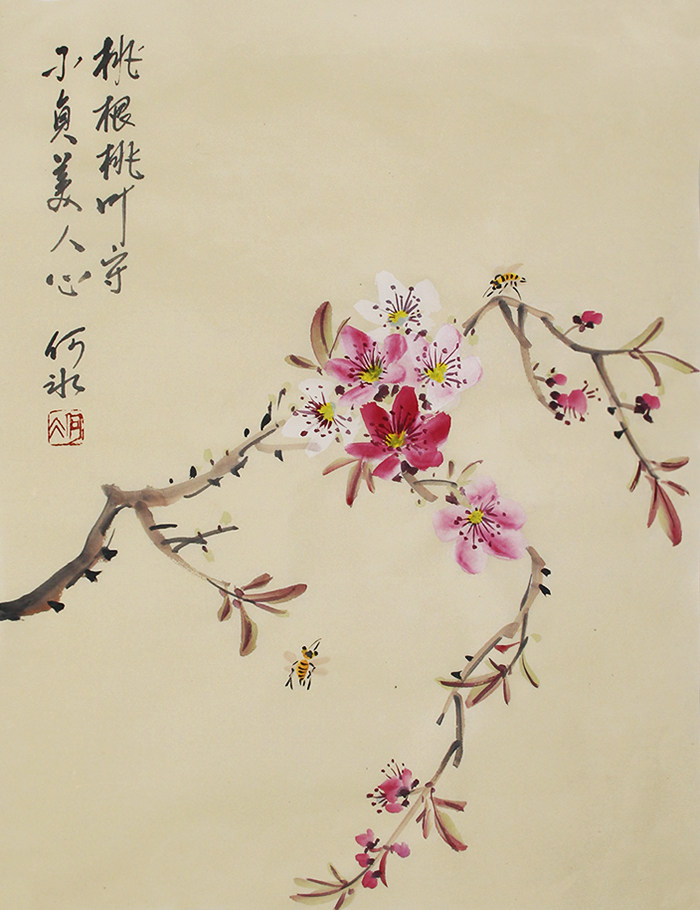 桃根桃叶守
不贞美人心
何冰